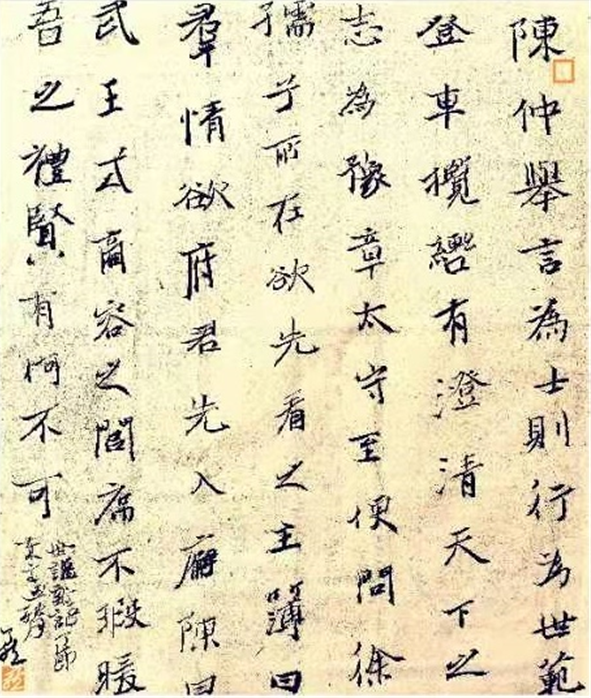 陳仲舉言為士則行為世範
登車攬轡有澄清天下之
志為豫章太守至便問徐
孺子所在欲先看之主簿曰
羣情欲府君先入廨陳曰
武王式商容之閭席不暇暖
吾之禮賢有何不可